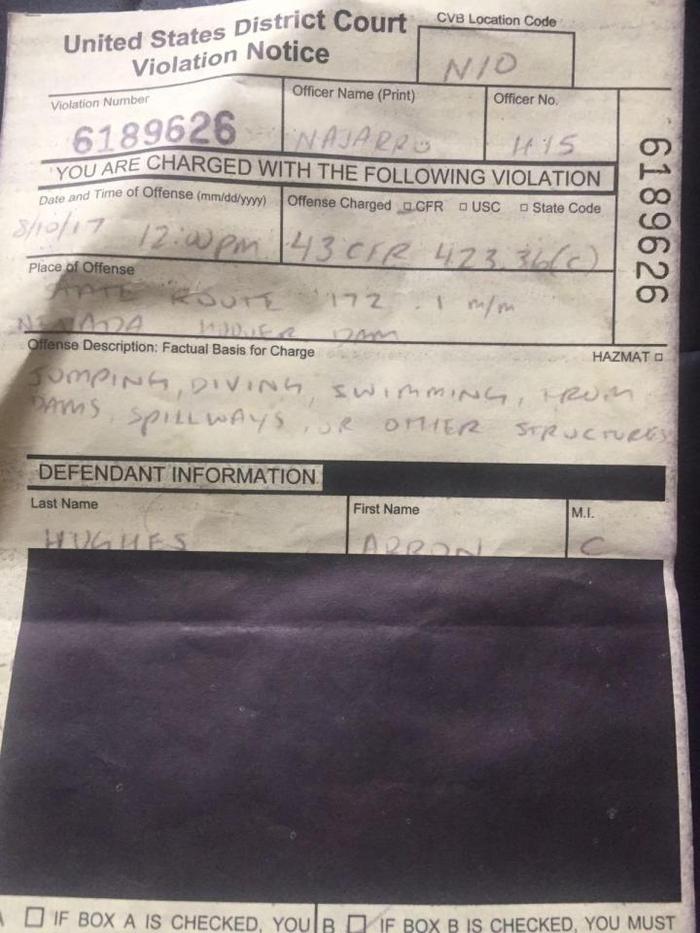 United States District Court
Violation Notice
CVB Location Code
N10
Violation Number
6189626
Officer Name (Print)
NAJARRO
Officer No.
H15
6189626
YOU ARE CHARGED WITH THE FOLLOWING VIOLATION
Date and Time of Offense (mm/dd/yyyy)
8/10/17 12:00pm
Offense Charged □ CFR □ USC □ State Code
43 CFR 423.36(c)
Place of Offense
ROUTE 172 .1 m/m
NEVADA HOOVER DAM
Offense Description: Factual Basis for Charge
HAZMAT □
JUMPING, DIVING, SWIMMING, FROM
DAMS, SPILLWAYS, OR OTHER STRUCTURES
DEFENDANT INFORMATION
Last Name
HUGHES
First Name
ARRON
M.I.
C
A □ IF BOX A IS CHECKED, YOU
B □ IF BOX B IS CHECKED, YOU MUST